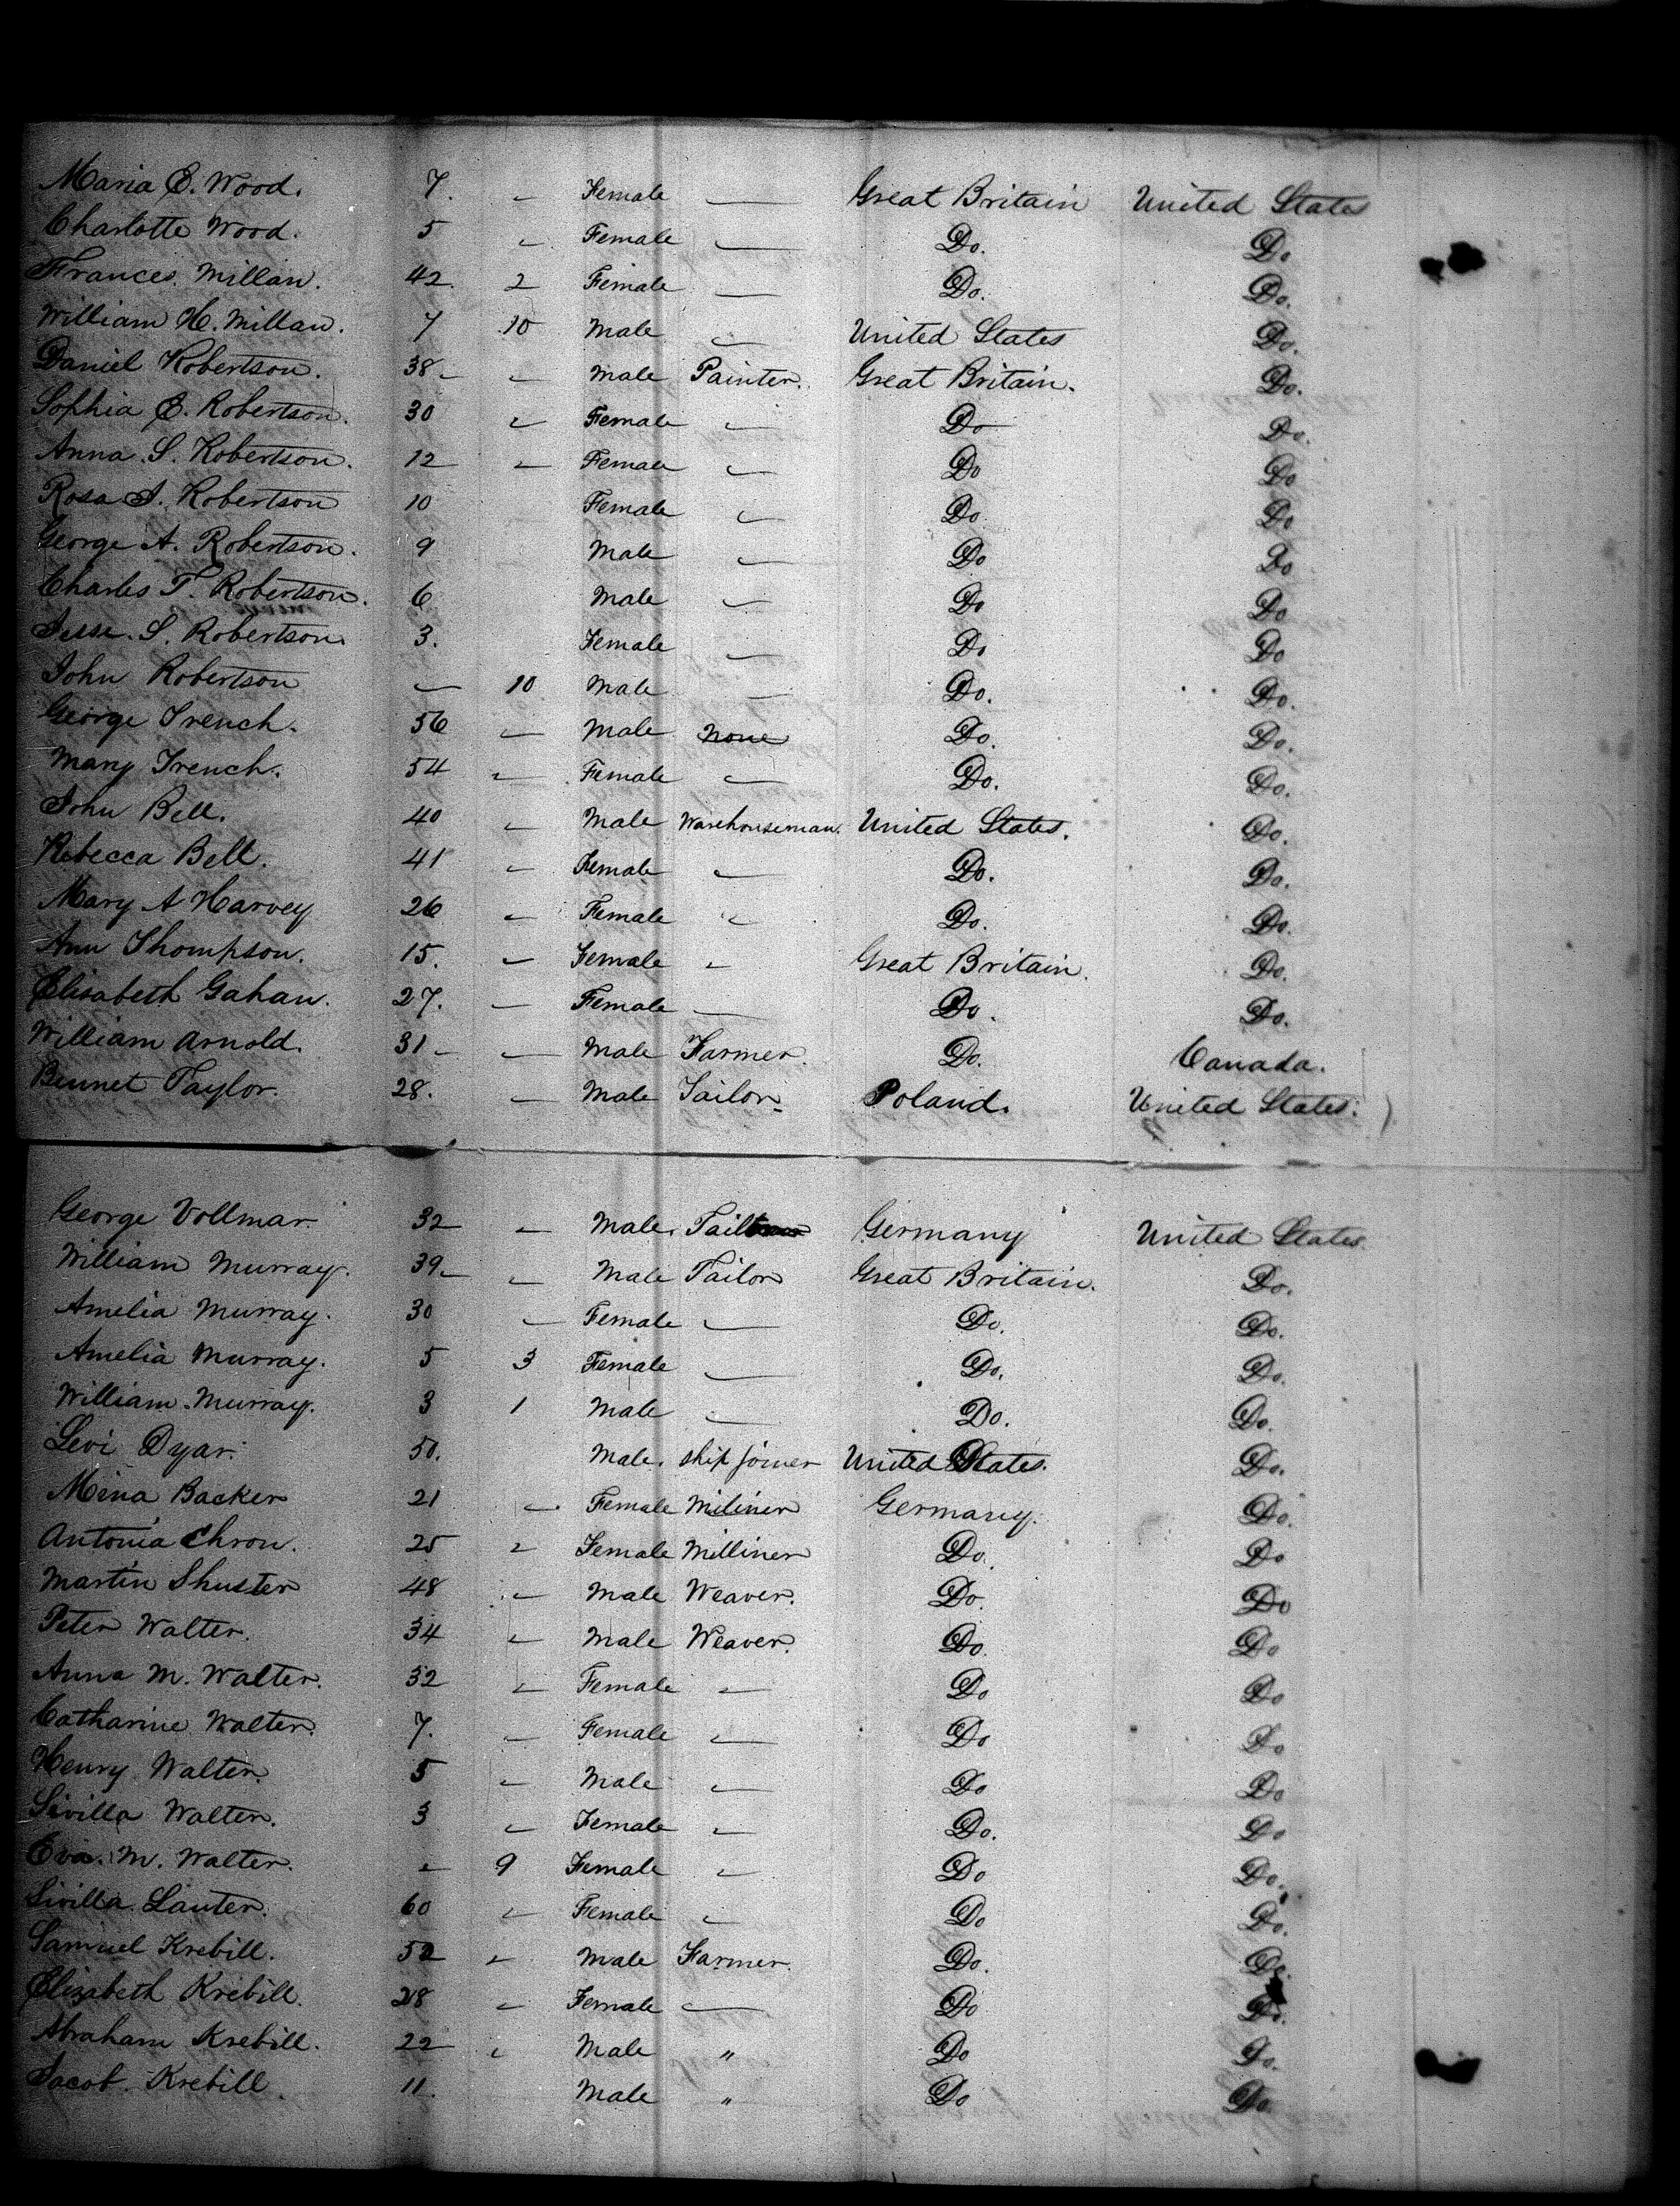 Maria E. Wood. 7. — Female — Great Britain United States
Charlotte Wood. 5 — Female — Do. Do
Frances Millan. 42. 2 Female — Do. Do.
William H. Millan. 7 10 Male — United States Do.
Daniel Robertson. 38 — — Male Painter. Great Britain. Do.
Sophia E. Robertson. 30 — Female — Do Do.
Anna S. Robertson. 12 — Female — Do Do
Rosa A. Robertson 10 Female — Do Do
George A. Robertson. 9 Male — Do Do
Charles T. Robertson. 6 Male — Do Do
Jesse. S. Robertson. 3. Female — Do Do
John Robertson — 10 Male — Do. Do.
George Trench. 56 — Male None Do. Do.
Mary Trench. 54 — Female — Do. Do.
John Bell. 40 — Male Warehouseman. United States. Do.
Rebecca Bell. 41 — Female — Do. Do.
Mary A Harvey 26 — Female — Do. Do.
Ann Thompson. 15. — Female — Great Britain. Do.
Elisabeth Gahan. 27. — Female — Do. Do.
William Arnold. 31 — — Male Farmer. Do. Canada.
Bennet Taylor. 28. — Male Tailor. Poland. United States.
George Vollmar. 32 — Male. Germany United States.
William Murray. 39 — — Male Tailor Great Britain. Do.
Amelia Murray. 30 — Female — Do. Do.
Amelia Murray. 5 3 Female — Do. Do.
William Murray. 3 1 Male — Do. Do.
Levi Dyar. 50. Male. Ship joiner United States. Do.
Mina Backer 21 — Female Miliner Germany. Do.
Antonia Chron. 25 — Female Milliner Do. Do
Martin Shuster 48 — Male Weaver. Do. Do
Peter Walter. 34 — Male Weaver. Do. Do
Anna M. Walter. 32 — Female — Do Do
Catharine Walter. 7. — Female — Do Do
Henry Walter. 5 — Male — Do Do
Sivilla Walter. 3 — Female — Do. Do
Eva. M. Walter. — 9 Female — Do Do.
Sivilla Lauter. 60 — Female — Do Do.
Samuel Krebill. 52 — Male Farmer. Do. Do.
Elizabeth Krebill. 28 — Female — Do Do.
Abraham Krebill. 22 — Male " Do Do.
Jacob Krebill. 11. Male " Do Do.